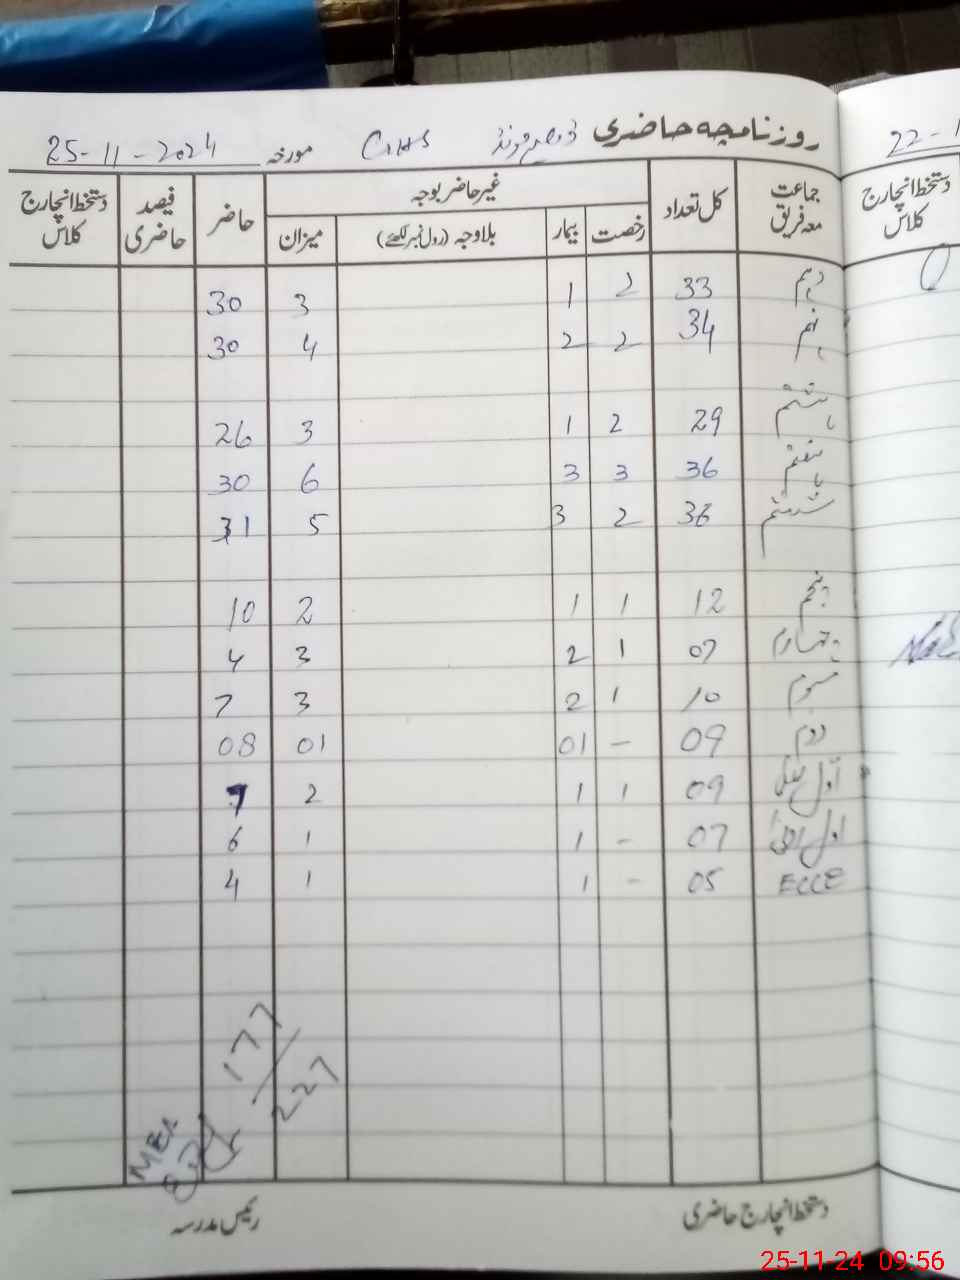 روزنامچہ حاضری GHS مورخہ 25-11-2024
22-1
جماعت معہ فریق کل تعداد غیر حاضر بوجہ حاضر فیصد حاضری دستخط انچارج کلاس
رخصت بیمار بلاوجہ (رول نمبر لکھئے) میزان
دستخط انچارج کلاس
دہم 33 2 1 3 30
نہم 34 2 2 4 30
ہشتم 29 2 1 3 26
ہفتم 36 3 3 6 30
ششم 36 2 3 5 31
پنجم 12 1 1 2 10
چہارم 07 1 2 3 4
سوم 10 1 2 3 7
دوم 09 - 01 01 08
اول 09 1 1 2 7
اول 07 - 1 1 6
ECCE 05 - 1 1 4
177/227
MEA
دستخط انچارج حاضری رئیس مدرسہ
25-11-24 09:56